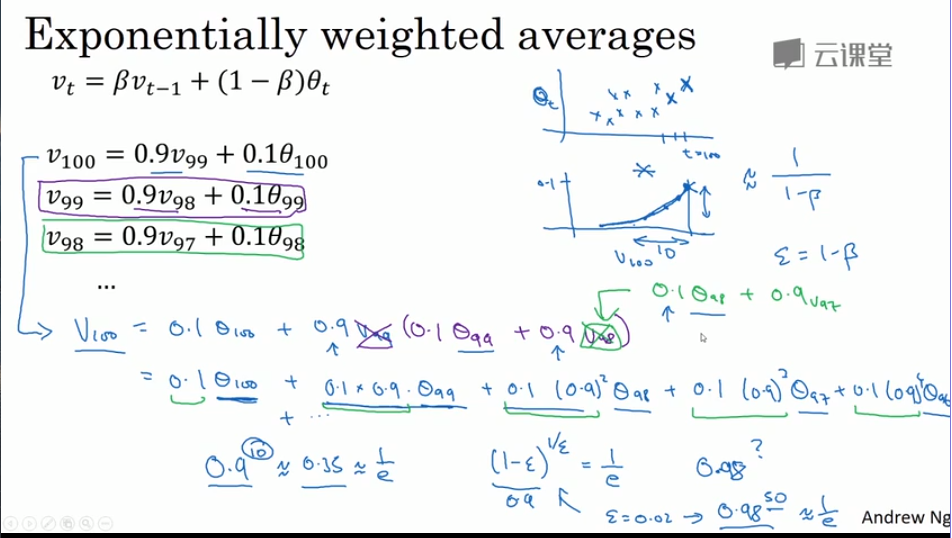 Exponentially weighted averages
云课堂
v_t = βv_{t−1} + (1 − β)θ_t
θ_t
t=100
v_100 = 0.9v_99 + 0.1θ_100
v_99 = 0.9v_98 + 0.1θ_99
v_98 = 0.9v_97 + 0.1θ_98
...
0.1
V_100
10
≈ 1/(1-β)
ε = 1-β
0.1 θ_98 + 0.9 v_97
V_100 = 0.1 θ_100 + 0.9 v_99 (0.1 θ_99 + 0.9 v_98)
= 0.1 θ_100 + 0.1 × 0.9 · θ_99 + 0.1 (0.9)² θ_98 + 0.1 (0.9)³ θ_97 + 0.1 (0.9)⁴ θ_96
+ ...
0.9^10 ≈ 0.35 ≈ 1/e
(1-ε)^{1/ε} = 1/e
0.9
0.98^?
ε = 0.02 → 0.98^50 ≈ 1/e
Andrew Ng